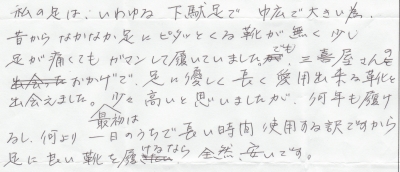 私の足は、いわゆる下駄足で 巾広で大きい為、
昔からなかなか足にピタッとくる靴が無く少し
足が痛くてもガマンして履いていました。でも 三喜屋さんの
おかげで、足に優しく長く愛用出来る靴と
出会えました。少々高いと思いましたが、何年も履け
最初は
るし、何より一日のうちで長い時間使用する訳ですから
足に良い靴を履けるなら 全然、安いです。